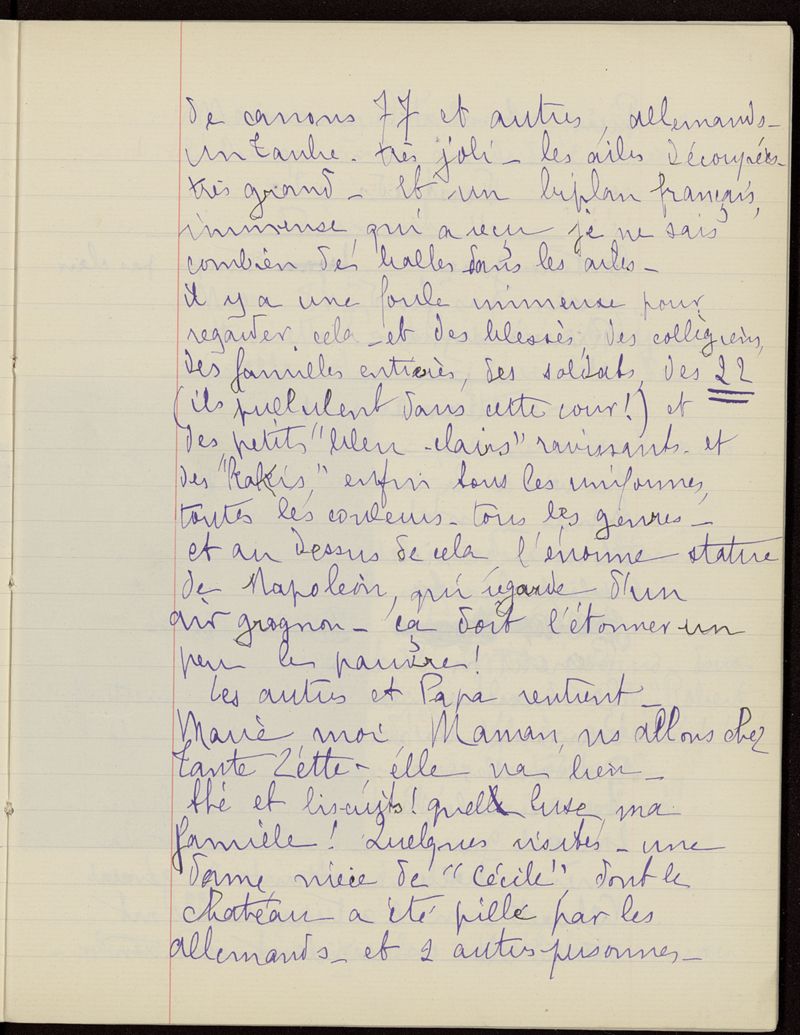 de canons 77 et autres, allemands_
un taube. très joli_ les ailes découpées_
très grand_ Et un biplan français,
immense, qui a reçu je ne sais
combien de balles dans les ailes_
il y a une foule immense pour
regarder cela_ et des blessés, des collègiens,
des familles entières, des soldats, des 22
(ils pullulent dans cette cour!) et
des petits "bleu-clairs" ravissants_ et
des "Kakis," enfin tous les uniformes,
toutes les couleurs_ tous les genres_
et au dessus de cela, l'énorme statue
de Napoleon, qui regarde d'un
air grognon_ ça doit l'étonner un
peu le pauvre!
Les autres et Papa rentrent_
Marie moi Maman, ns allons chez
tante Zette_, elle va bien_
thé et biscuits! quel luxe, ma
famièle! Quelques visites_ une
dame, nièce de "Cécile", dont le
chateau a été pillé par les
allemands_ et 2 autres personnes_